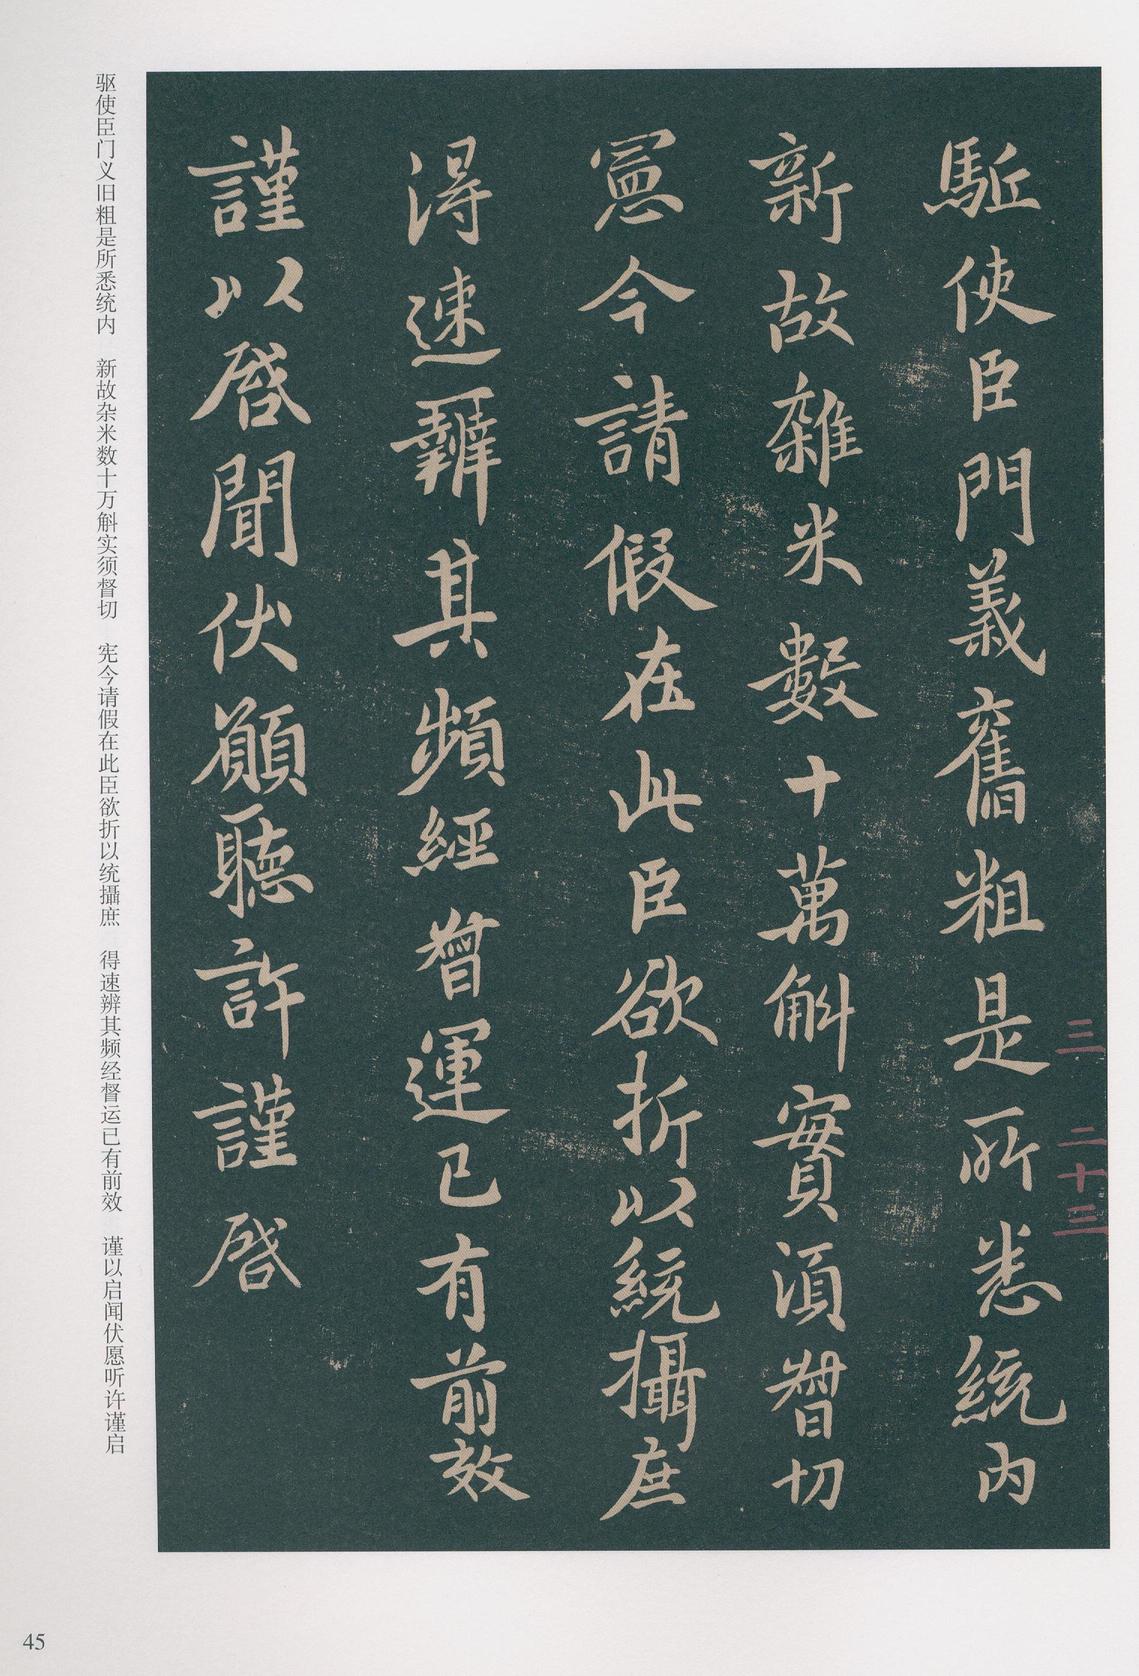 駈使臣門義舊粗是所悉統内
新故雜米數十萬斛實須督切
憲今請假在此臣欲折以統攝庶
得速辨其頻經督運已有前效
謹以啓聞伏願聽許謹啓
三 二十三
驱使臣门义旧粗是所悉统内 新故杂米数十万斛实须督切 宪今请假在此臣欲折以统攝庶 得速辨其频经督运已有前效 谨以启闻伏愿听许谨启
45